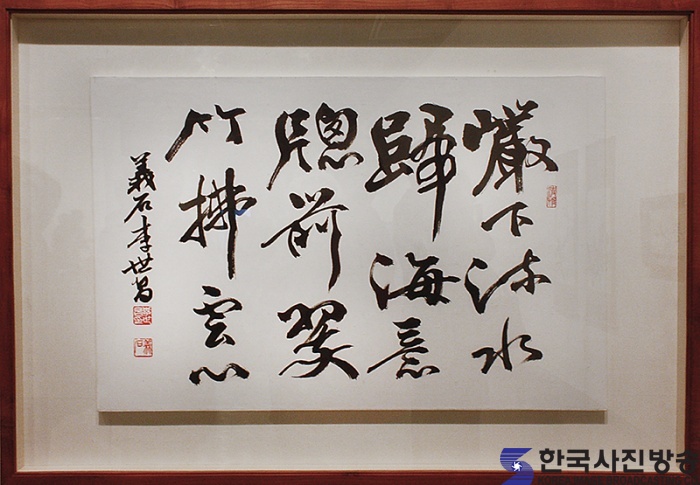 巖下流水
歸海意
牕前翠
竹拂雲心
義石 李世昌
한국사진방송